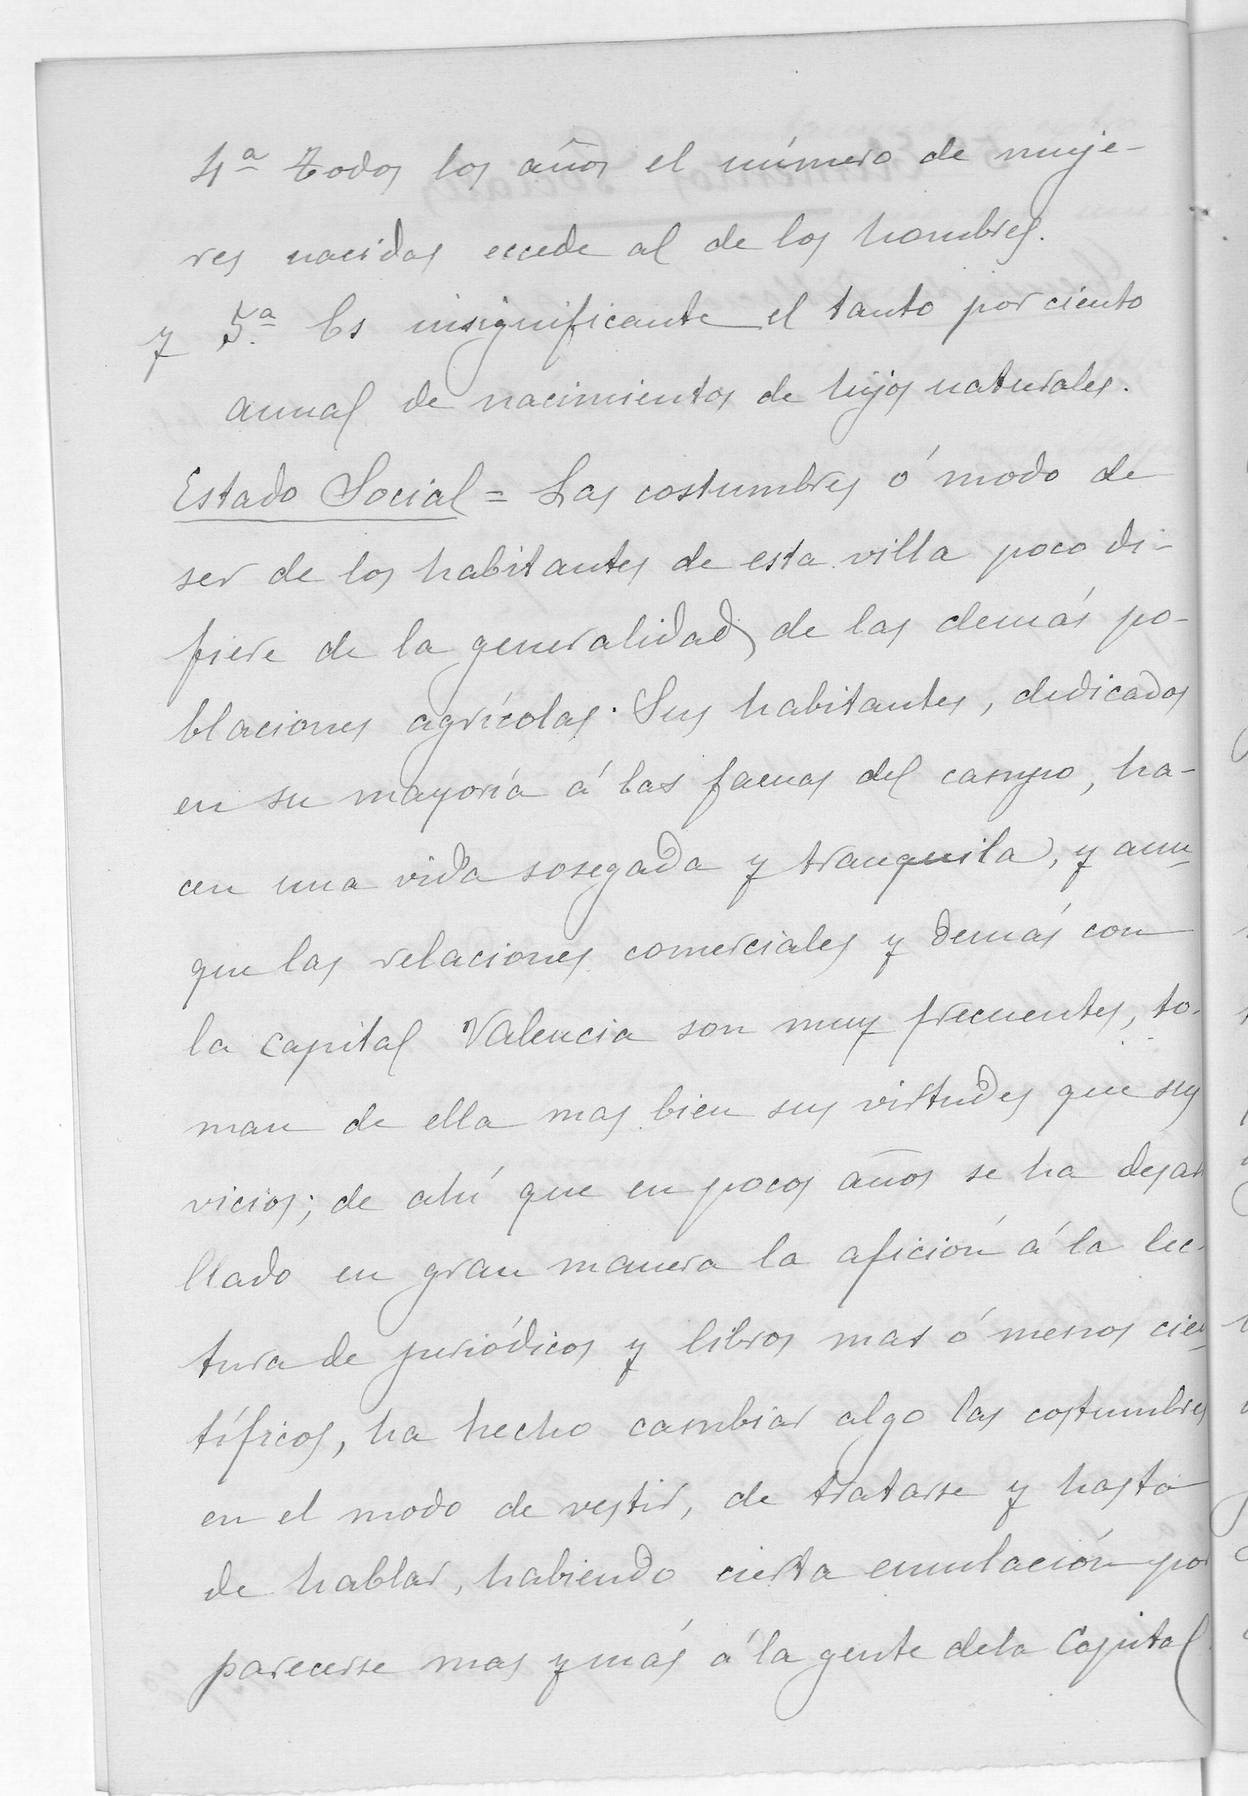 4ª Todos los años el número de muje-
res nacidas eccede al de los hombres.
y 5ª. Es insignificante el tanto por ciento
anual de nacimientos de hijos naturales.
Estado Social = Las costumbres ó modo de
ser de los habitantes de esta villa poco di-
fiere de la generalidad de las demás po-
blaciones agrícolas. Sus habitantes, dedicados
en su mayoría á las faenas del campo, ha-
cen una vida sosegada y tranquila, y aun-
que las relaciones comerciales y demás con
la capital Valencia son muy frecuentes, to-
man de ella mas bien sus virtudes que sus
vicios; de ahí que en pocos años se ha desar
llado en gran manera la afición á la lec-
tura de periódicos y libros mas ó menos cien-
tíficos, ha hecho cambiar algo las costumbres
en el modo de vestir, de tratarse y hasta
de hablar, habiendo cierta emulación por
parecerse mas y más á la gente de la Capital